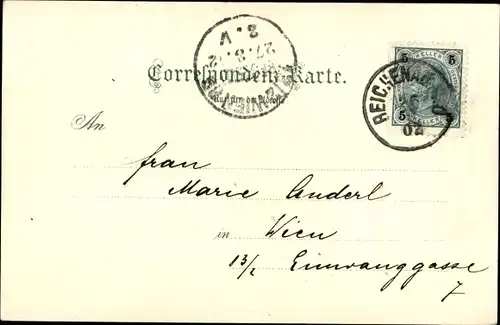 2. V
27.8.
Correspondenz-Karte.
5 HELLER 5
REICHENAU
02
5
An
Frau
Marie Anderl
in Wien
13/2 Einwanggasse
7